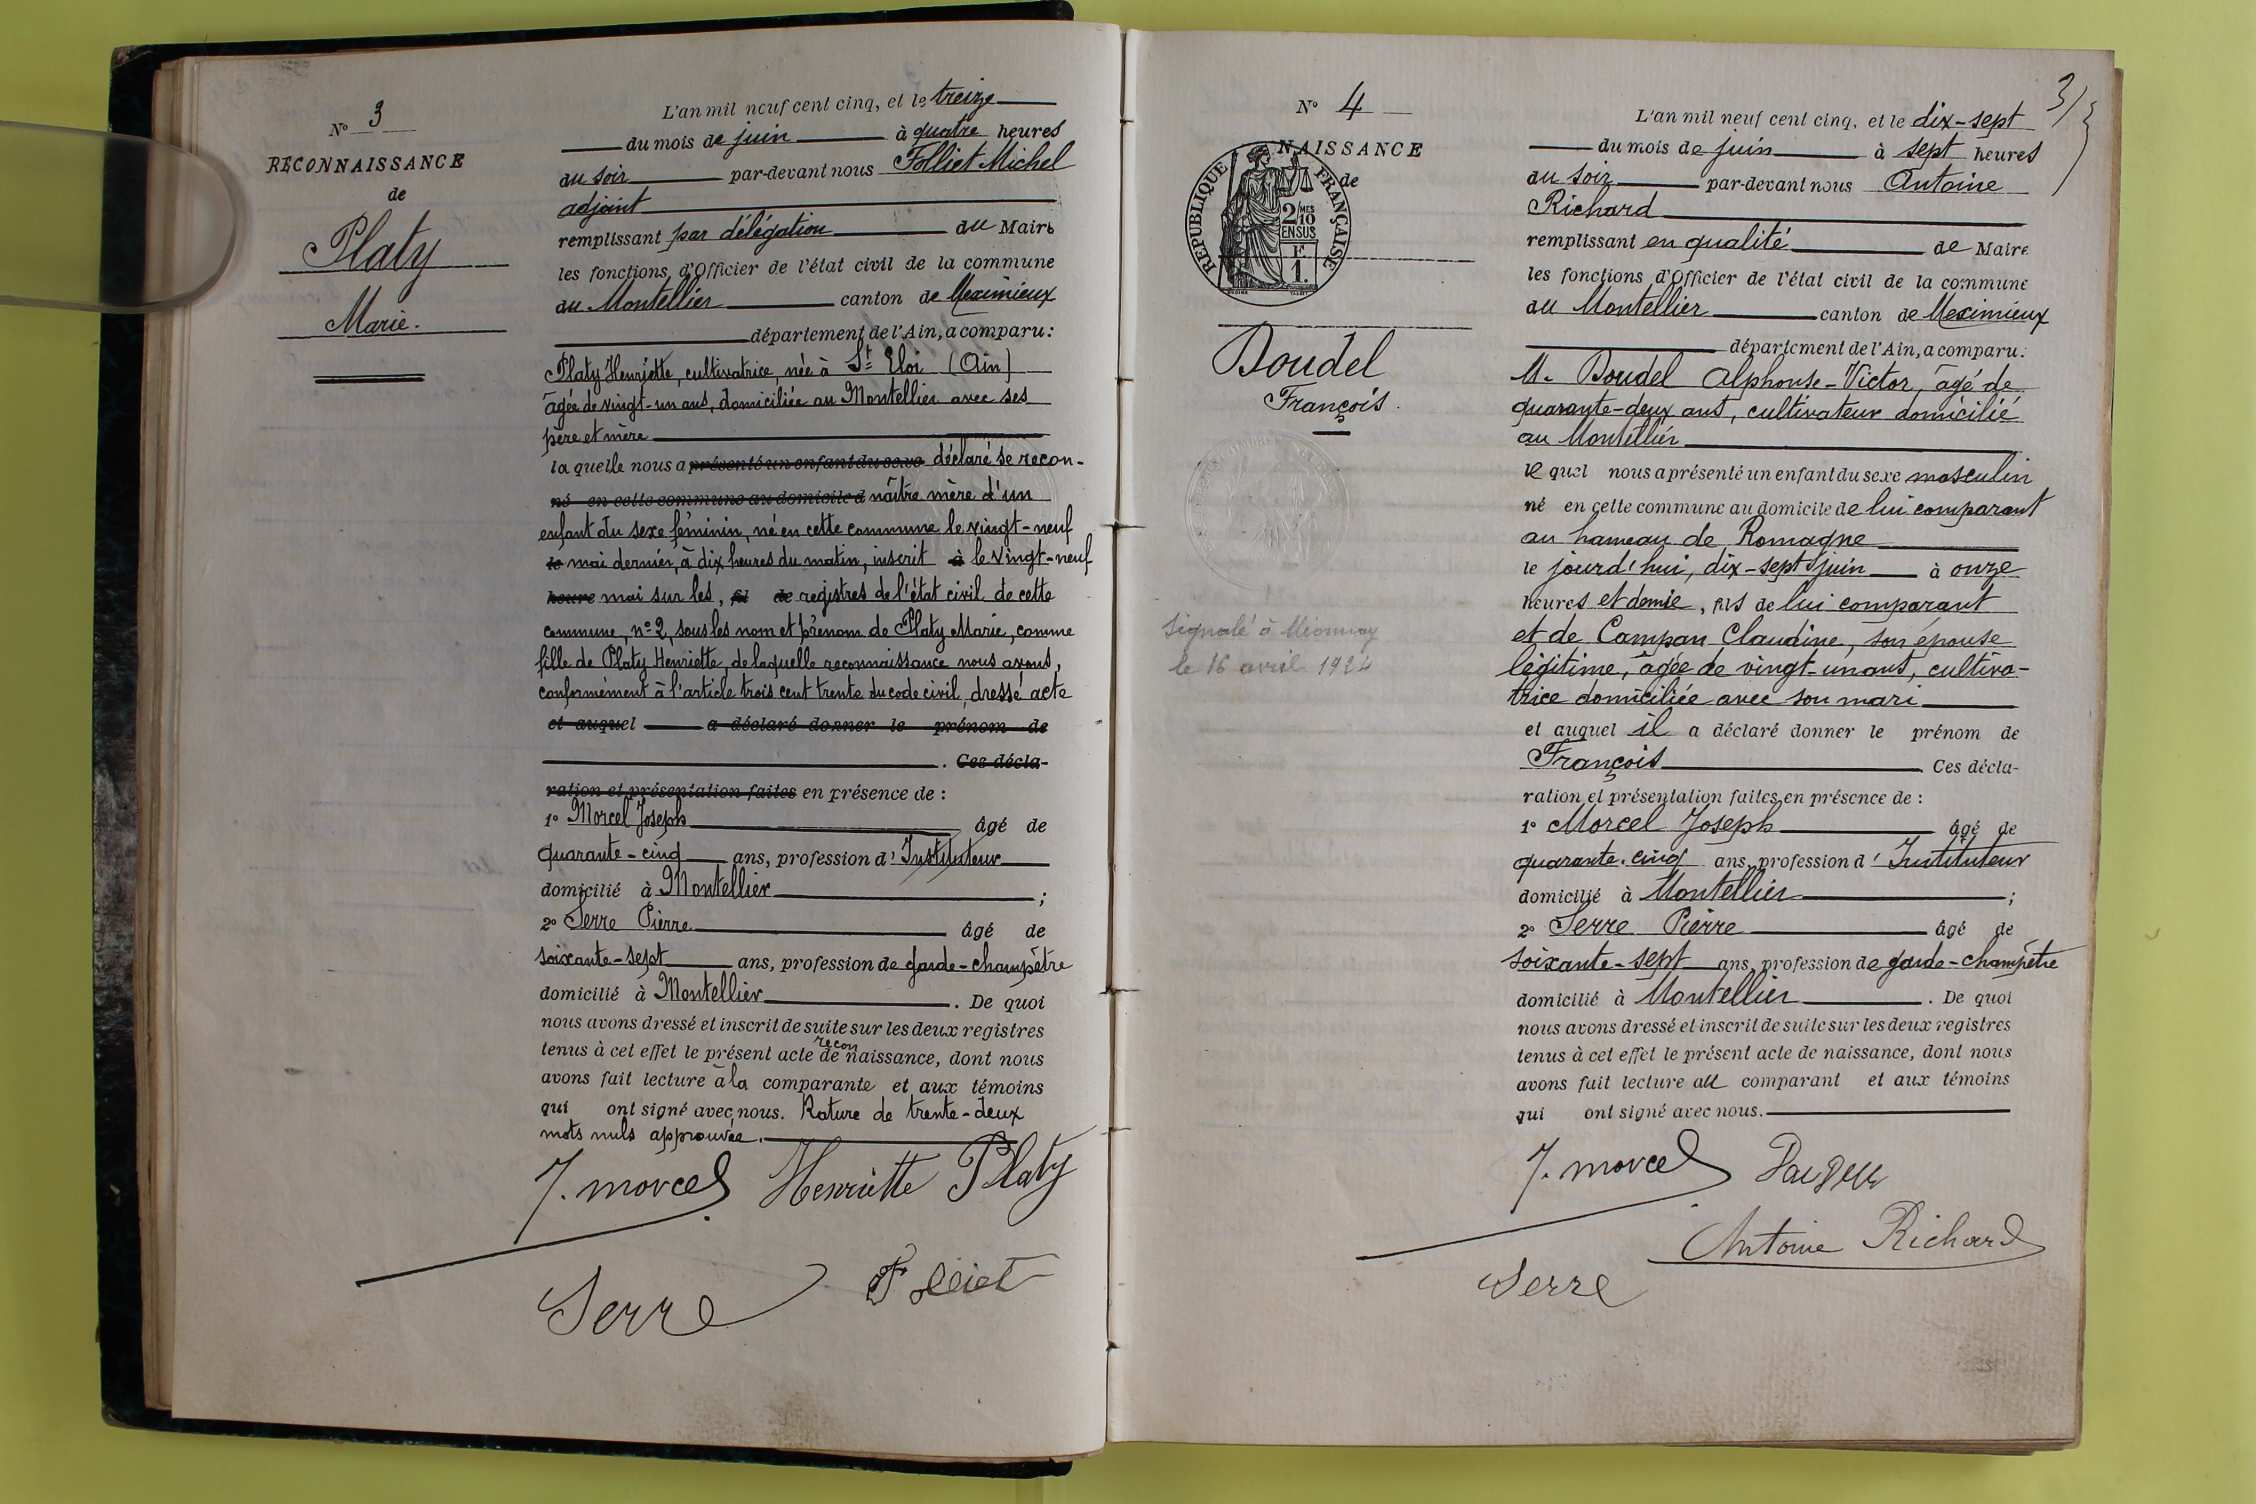 N° 3
RECONNAISSANCE
de
Platy
Marie.
L'an mil neuf cent cinq, et le treize
du mois de juin à quatre heures
du soir par-devant nous Folliet Michel
adjoint
remplissant par délégation du Maire
les fonctions d'Officier de l'état civil de la commune
du Montellier canton de Meximieux
département de l'Ain, a comparu:
Platy Henriette, cultivatrice, née à St Eloi (Ain)
âgée de vingt-un ans, domiciliée au Montellier avec ses
père et mère
la quelle nous a présenté un enfant du sexe déclaré se recon-
né en cette commune au domicile d naître mère d'un
enfant du sexe féminin, né en cette commune le vingt-neuf
le mai dernier, à dix heures du matin, inscrit à le vingt-neuf
heure mai sur les, fil de registres de l'état civil de cette
commune, n° 2, sous les nom et prénom de Platy Marie, comme
fille de Platy Henriette, de laquelle reconnaissance nous avons,
conformément à l'article trois cent trente du code civil, dressé acte
et auquel a déclaré donner le prénom de
. Ces décla-
ration et présentation faites en présence de :
1° Morcel Joseph âgé de
quarante-cinq ans, profession d'Instituteur
domicilié à Montellier ;
2° Serre Pierre âgé de
soixante-sept ans, profession de garde-champêtre
domicilié à Montellier . De quoi
nous avons dressé et inscrit de suite sur les deux registres
recon
tenus à cet effet le présent acte de naissance, dont nous
avons fait lecture à la comparante et aux témoins
qui ont signé avec nous. Rature de trente-deux
mots nuls approuvée.
J. Morcel Henriette Platy
Serre Folliet
3
N° 4
NAISSANCE
de
RÉPUBLIQUE FRANÇAISE
2/10 MES
EN SUS
F
1.
Boudel
François.
signalé à Mionnay
le 16 avril 1924
L'an mil neuf cent cinq, et le dix-sept
du mois de juin à sept heures
du soir par-devant nous Antoine
Richard
remplissant en qualité de Maire
les fonctions d'Officier de l'état civil de la commune
du Montellier canton de Meximieux
département de l'Ain, a comparu:
M. Boudel Alphonse-Victor, âgé de
quarante-deux ans, cultivateur domicilié
au Montellier
le quel nous a présenté un enfant du sexe masculin
né en cette commune au domicile de lui comparant
au hameau de Romagne
le jourd'hui, dix-sept juin à onze
heures et demie, fils de lui comparant
et de Campan Claudine, son épouse
légitime, âgée de vingt-un ans, cultiva-
trice domiciliée avec son mari
et auquel il a déclaré donner le prénom de
François Ces décla-
ration et présentation faites en présence de :
1° Morcel Joseph âgé de
quarante-cinq ans, profession d'Instituteur
domicilié à Montellier ;
2° Serre Pierre âgé de
soixante-sept ans, profession de garde-champêtre
domicilié à Montellier . De quoi
nous avons dressé et inscrit de suite sur les deux registres
tenus à cet effet le présent acte de naissance, dont nous
avons fait lecture au comparant et aux témoins
qui ont signé avec nous.
J. Morcel
Antoine Richard
Serre